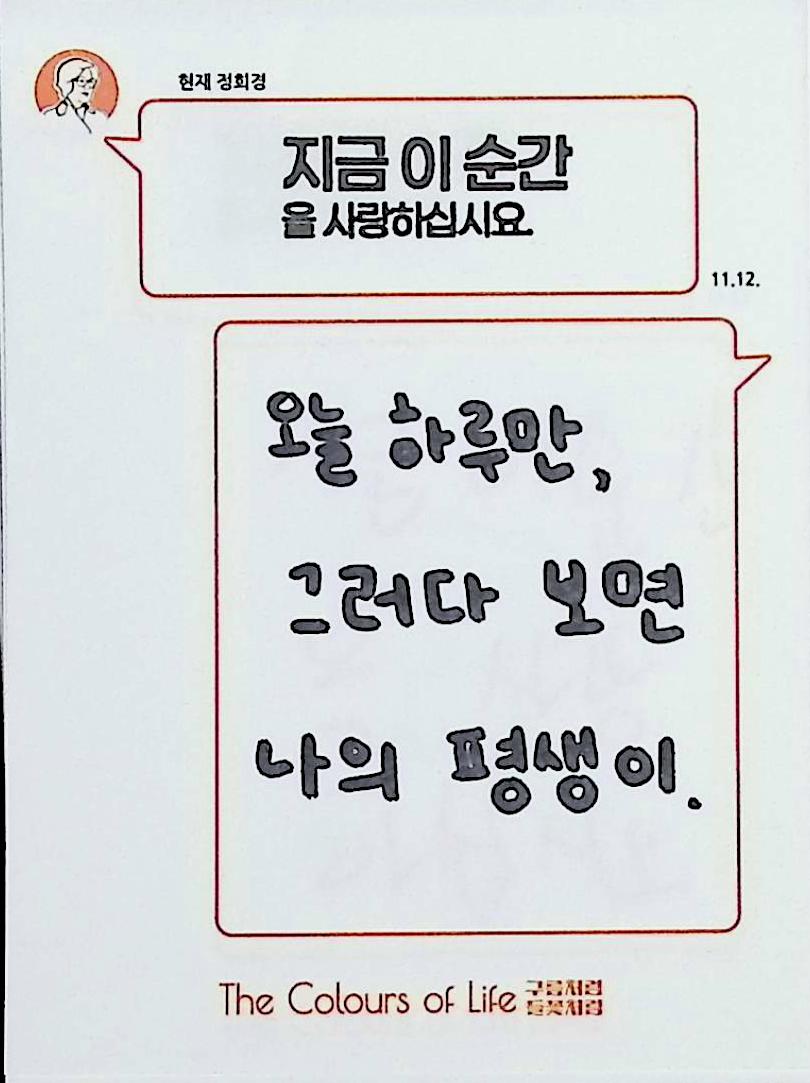 현재 정희경
지금 이 순간
을 사랑하십시요.
11.12.
오늘 하루만,
그러다 보면
나의 평생이.
The Colours of Life 구름처럼
들꽃처럼